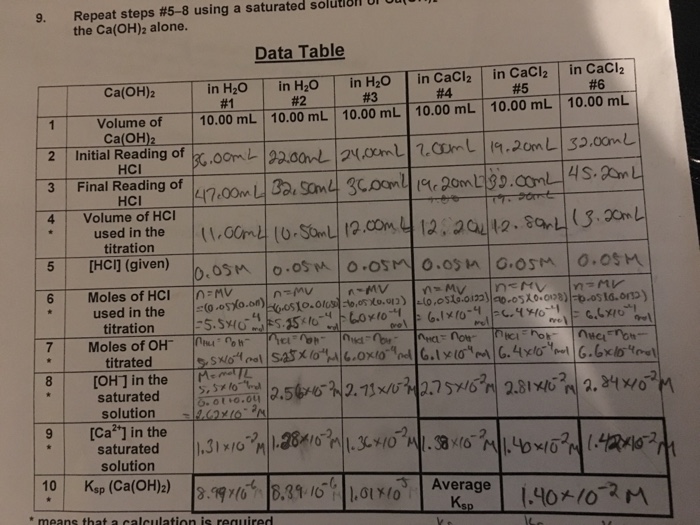 9. Repeat steps #5–8 using a saturated solution of
the Ca(OH)₂ alone.
Data Table
Ca(OH)₂ in H₂O #1 in H₂O #2 in H₂O #3 in CaCl₂ #4 in CaCl₂ #5 in CaCl₂ #6
1 Volume of Ca(OH)₂ 10.00 mL 10.00 mL 10.00 mL 10.00 mL 10.00 mL 10.00 mL
2 Initial Reading of HCl 36.00mL 22.00mL 24.00mL 7.00mL 19.20mL 32.00mL
3 Final Reading of HCl 47.00mL 32.50mL 36.00mL 19.20mL 32.00mL 45.20mL
4 * Volume of HCl used in the titration 11.00mL 10.50mL 12.00mL 12.20mL 12.80mL 13.20mL
5 [HCl] (given) 0.05M 0.05M 0.05M 0.05M 0.05M 0.05M
6 * Moles of HCl used in the titration n=MV =(0.05)(0.011) =5.5×10⁻⁴ mol n=MV =(0.05)(0.0105) =5.25×10⁻⁴ mol n=MV =(0.05)(0.012) =6.0×10⁻⁴ mol n=MV =(0.05)(0.0122) =6.1×10⁻⁴ mol n=MV =(0.05)(0.0128) =6.4×10⁻⁴ mol n=MV =(0.05)(0.0132) =6.6×10⁻⁴ mol
7 * Moles of OH⁻ titrated nHCl=nOH⁻ 5.5×10⁻⁴ mol nHCl=nOH⁻ 5.25×10⁻⁴ mol nHCl=nOH⁻ 6.0×10⁻⁴ mol nHCl=nOH⁻ 6.1×10⁻⁴ mol nHCl=nOH⁻ 6.4×10⁻⁴ mol nHCl=nOH⁻ 6.6×10⁻⁴ mol
8 * [OH⁻] in the saturated solution M=mol/L 5.5×10⁻⁴ mol 0.01+0.011 =2.62×10⁻²M 2.56×10⁻²M 2.73×10⁻²M 2.75×10⁻²M 2.81×10⁻²M 2.84×10⁻²M
9 * [Ca²⁺] in the saturated solution 1.31×10⁻²M 1.28×10⁻²M 1.36×10⁻²M 1.38×10⁻²M 1.40×10⁻²M 1.42×10⁻²M
10 * Ksp (Ca(OH)₂) 8.99×10⁻⁶ 8.39·10⁻⁶ 1.01×10⁻⁵ Average Ksp 1.40×10⁻²M
* means that a calculation is required